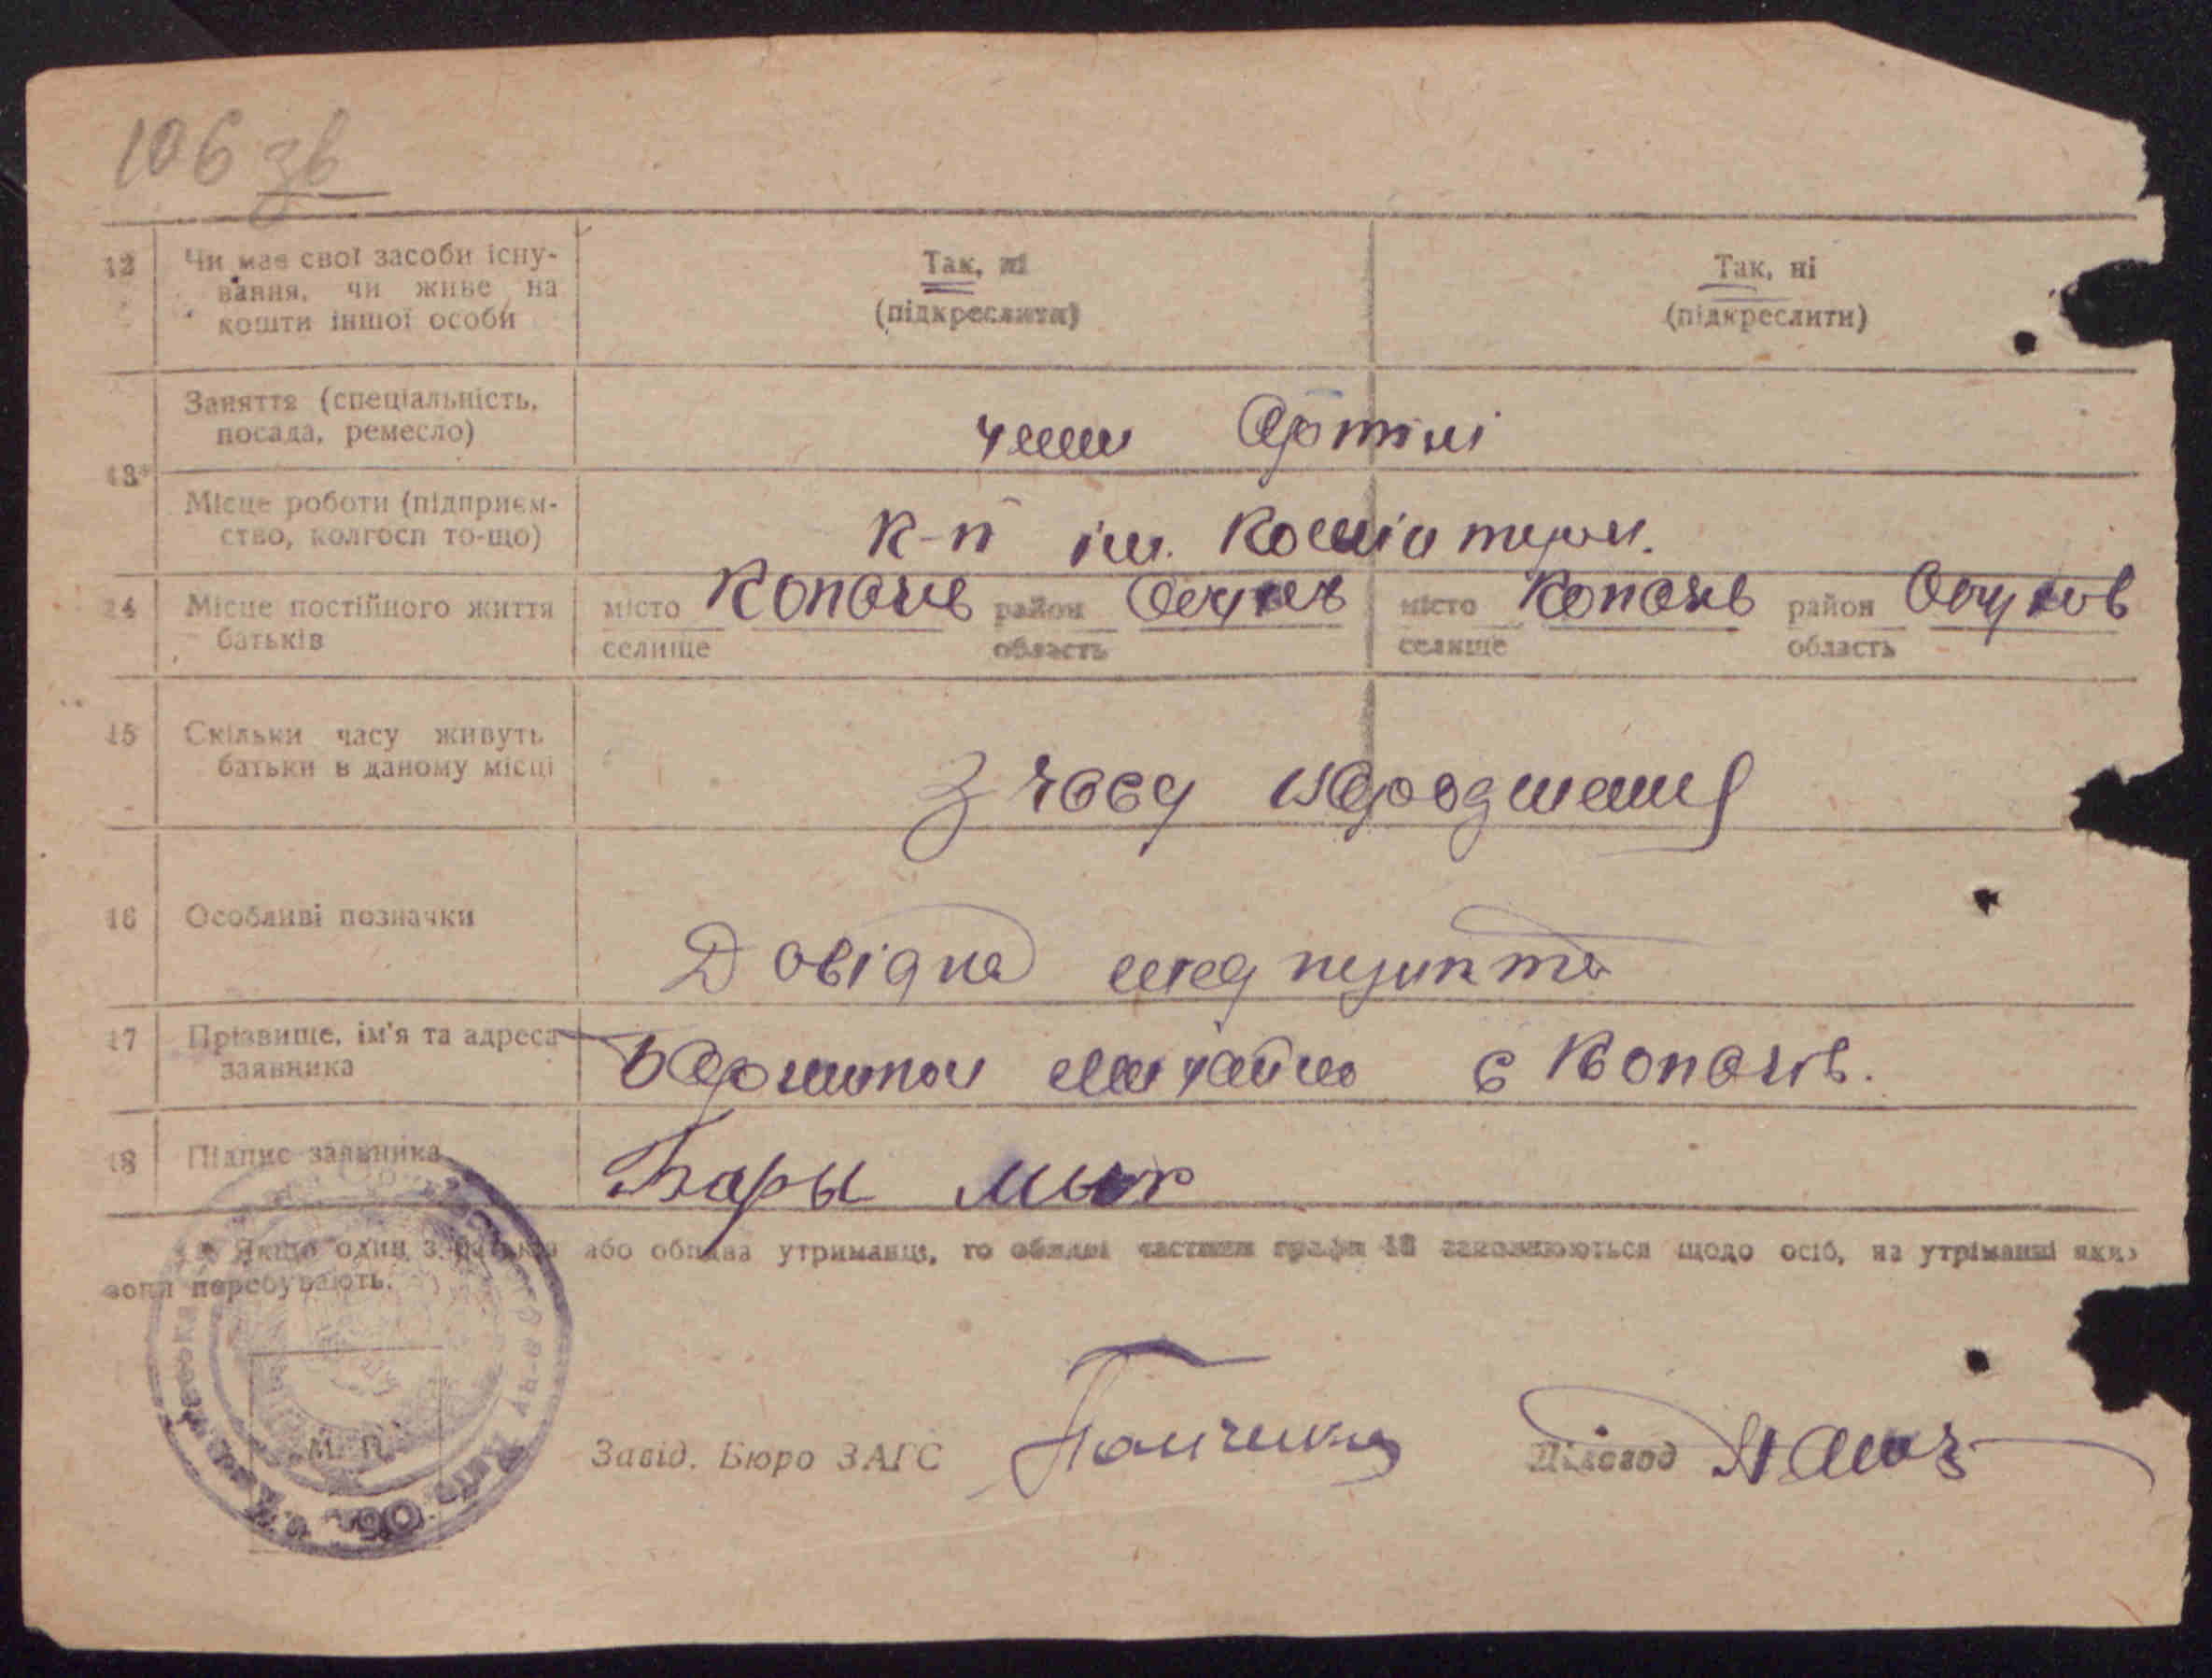 106 зв
12 Чи має свої засоби існу-
вання, чи живе на
кошти іншої особи
Так, ні
(підкреслити)
Так, ні
(підкреслити)
13*
Заняття (спеціальність,
посада, ремесло)
член Артілі
Місце роботи (підприєм-
ство, колгосп то-що)
к-п ім. Комінтерн.
14 Місце постійного життя
батьків
місто Копачів район Обухів
селище область
місто Копачів район Обухов
селище область
15 Скільки часу живуть
батьки в даному місці
З часу народження
16 Особливі позначки
Довідка медпункта
17 Прізвище, ім'я та адреса
заявника
Михайло с Копачів.
18 Підпис заявника
Бары
* Якщо один з батьків або обидва утриманці, то обидві частини графи 13 заповнюються щодо осіб, на утриманні яких
вони перебувають.
М. П.
Завід. Бюро ЗАГС
Діловод